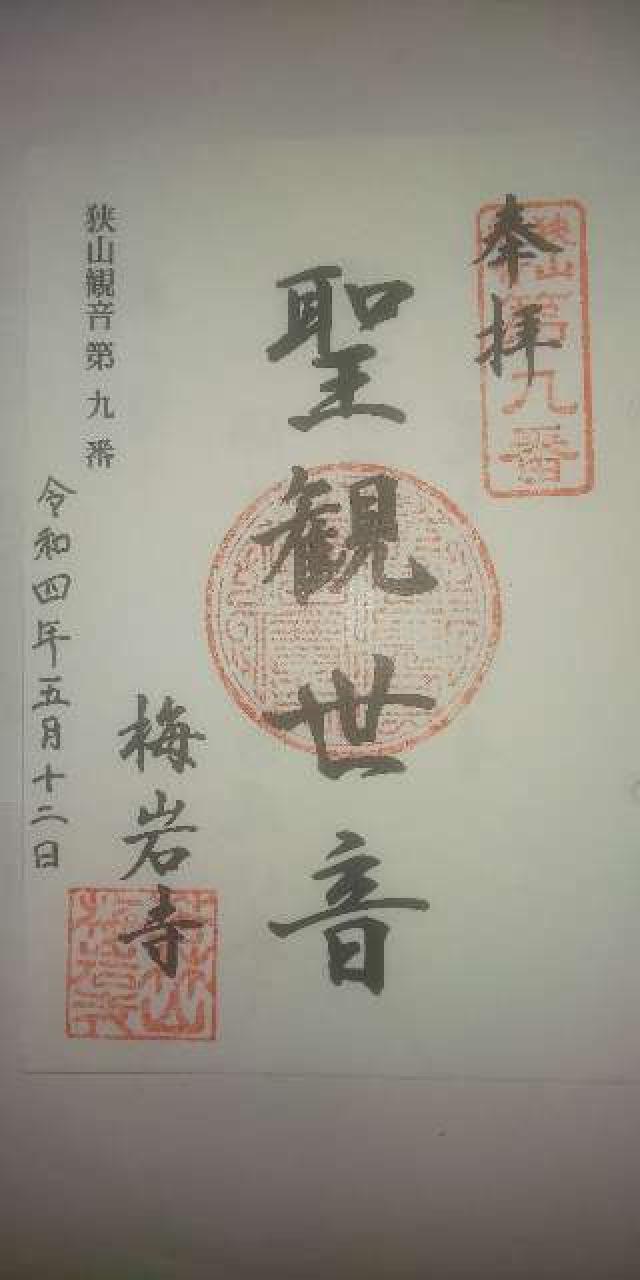 奉拝
狭山
第九番
聖観世音
狭山観音第九番
梅岩寺
令和四年五月十二日